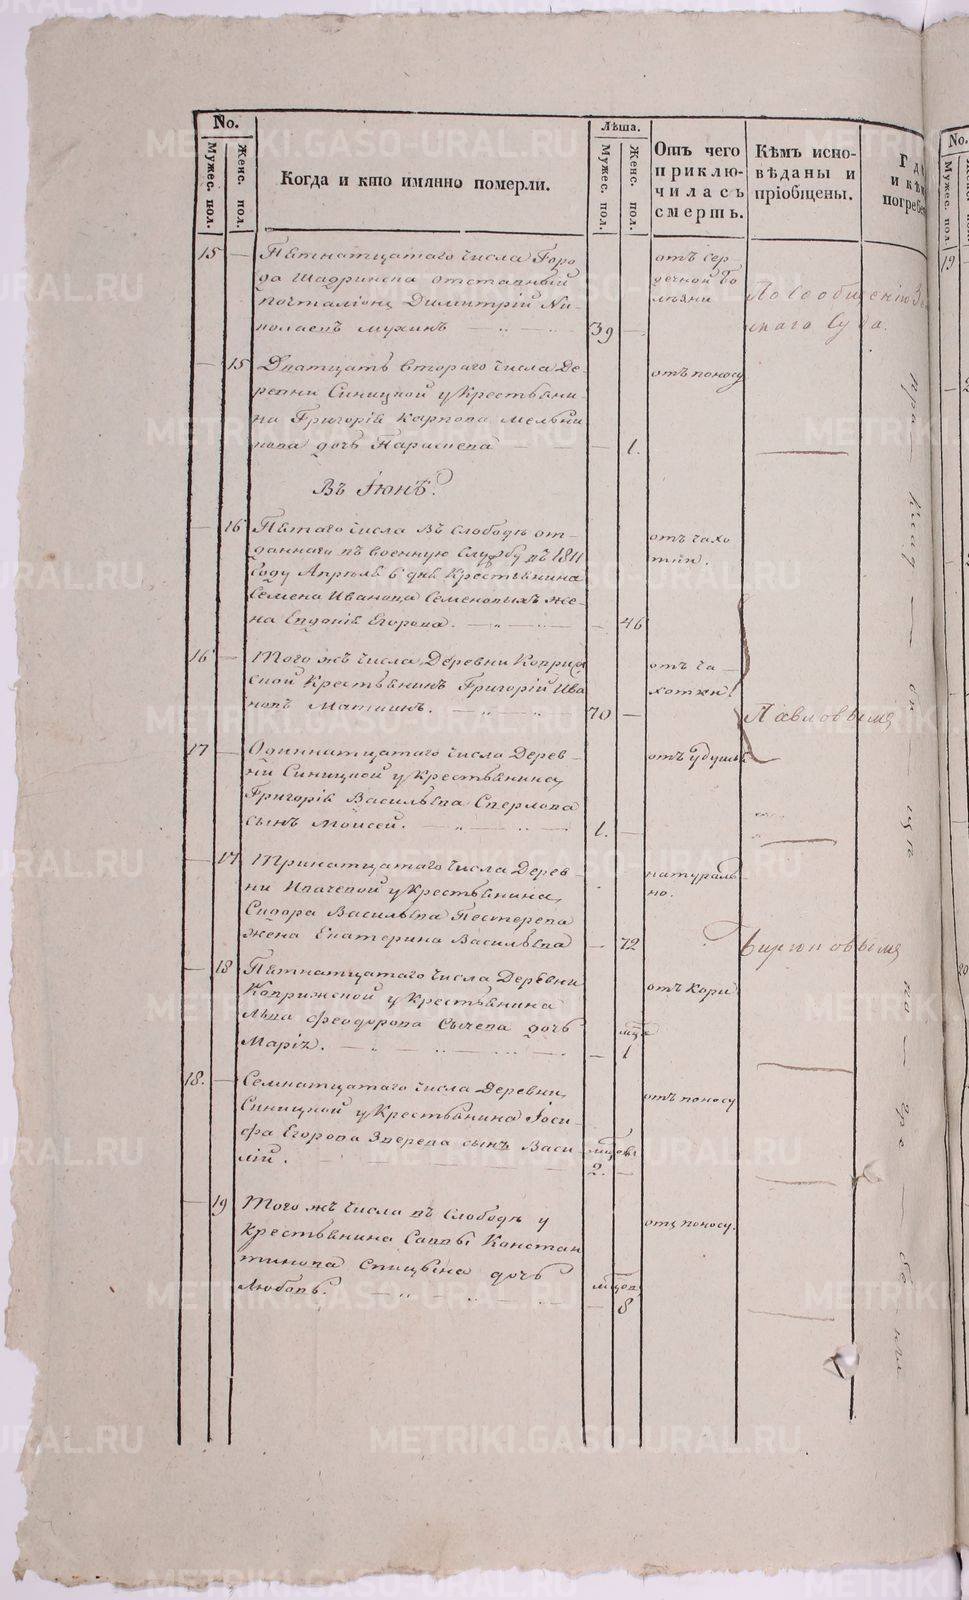 No.
Мужес. пол.
Женс. пол.
Когда и кто имянно померли.
Лѣта.
Мужес. пол.
Женс. пол.
Отъ чего приключилась смерть.
Кѣмъ исповѣданы и пріобщены.
Г д
и кѣ
погребе
15 — Пятнатцатаго числа Горо-
да Шадринска отставный
почталіонъ Димитрій Ни-
колаевъ Мухинъ 39 —
отъ сер-
дечной бо
лѣзни
По сообщенію Зем
скаго Суда.
— 15 Дватцать втораго числа Де-
ревни Синицкой у Крестьяни-
на Григорія Карпова Мельни
кова дочь Параскева — 1.
отъ поносу
Въ Іюнѣ.
— 16 Пятаго числа въ слободѣ от-
даннаго въ военную службу въ 1811
году Апрѣля 6 дня Крестьянина
Семена Иванова Семеновыхъ же-
на Евдокія Егорова. — 46
отъ чахо
тки.
16 — Того жъ числа Деревни
ской Крестьянинъ Григорій Ива
новъ 70 —
отъ ча-
хотки.
Павловымъ
17 — Одиннатцатаго числа Дерев-
ни Синицкой у Крестьянина
Григорія Васильева
сынъ Моисей. 1. —
отъ удушья
— 17 Тринатцатаго числа Дерев-
ни у Крестьянина
Сидора Васильева Пестерева
жена Екатерина Васильева — 72
натураль-
но.
— 18 Пятнатцатаго числа Деревни
у Крестьянина
Льва Феодорова Сычева дочь
Марія. — 1
отъ кори
18. — Семнатцатаго числа Деревни
Синицкой у Крестьянина Іоси-
фа Егорова Зверева сынъ Васи-
лій. 2. —
отъ поносу
— 19 Того жъ числа въ слободѣ у
крестьянина Саввы Констан
тинова Спицына дочь
Любовь. — 8
отъ поносу.
No.
Мужес. пол
19
METRIKI.GASO-URAL.RU